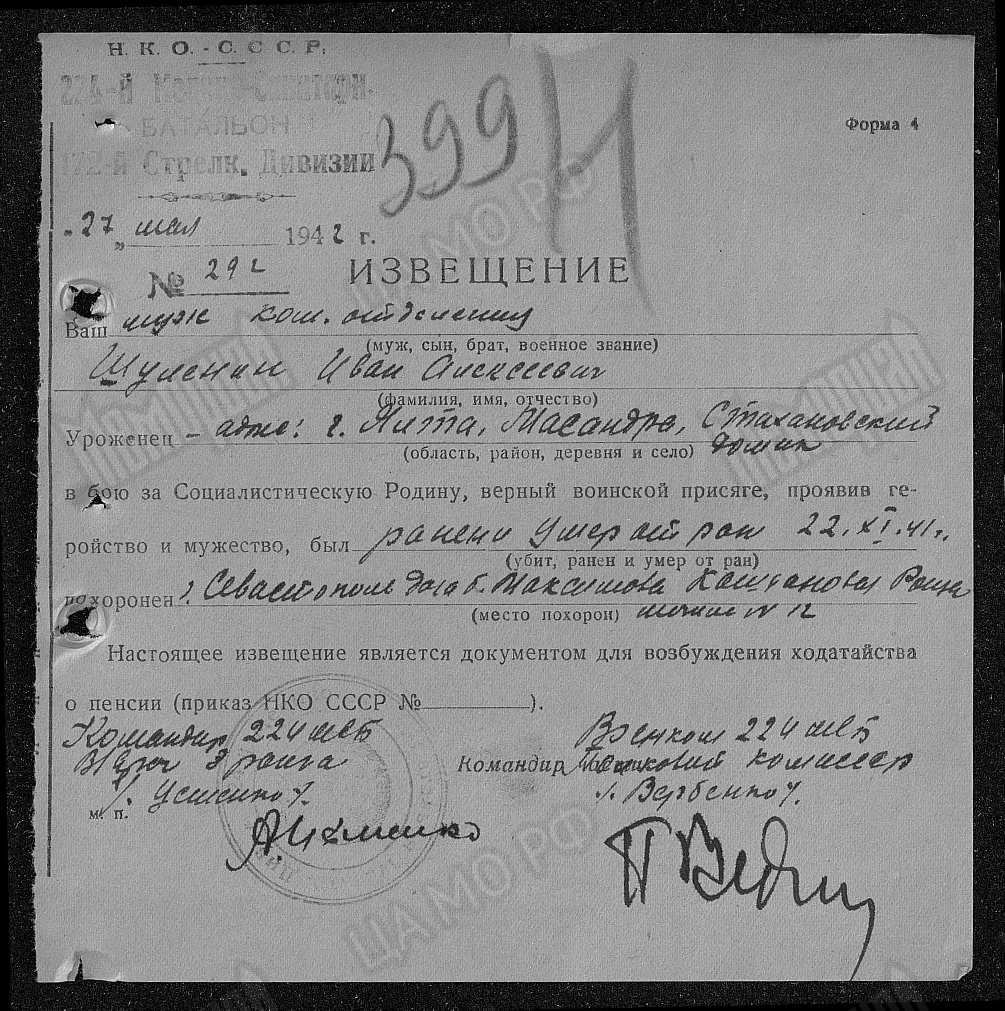 Н. К. О. - С. С. С. Р.
224-й Медико-Санитарн.
БАТАЛЬОН
172-й Стрелк. Дивизии
399
Ч
Форма 4
„27„ мая 1942 г.
№ 292
ИЗВЕЩЕНИЕ
Ваш муж ком. отделения
(муж, сын, брат, военное звание)
Шуленин Иван Алексеевич
(фамилия, имя, отчество)
Уроженец - адрес: г. Ялта, Масандра, Стахановский
(область, район, деревня и село) домик
в бою за Социалистическую Родину, верный воинской присяге, проявив ге-
ройство и мужество, был ранен и умер от ран 22.XI.41 г.
(убит, ранен и умер от ран)
похоронен г. Севастополь дача б. Максимова Каштановая Роща
(место похорон) могила N 12
Настоящее извещение является документом для возбуждения ходатайства
о пенсии (приказ НКО СССР №).
Командир 224 мсб Военком 224 мсб
В/врач 3 ранга Командир комиссар
м. п.
ЦАМО РФ
Мемориал